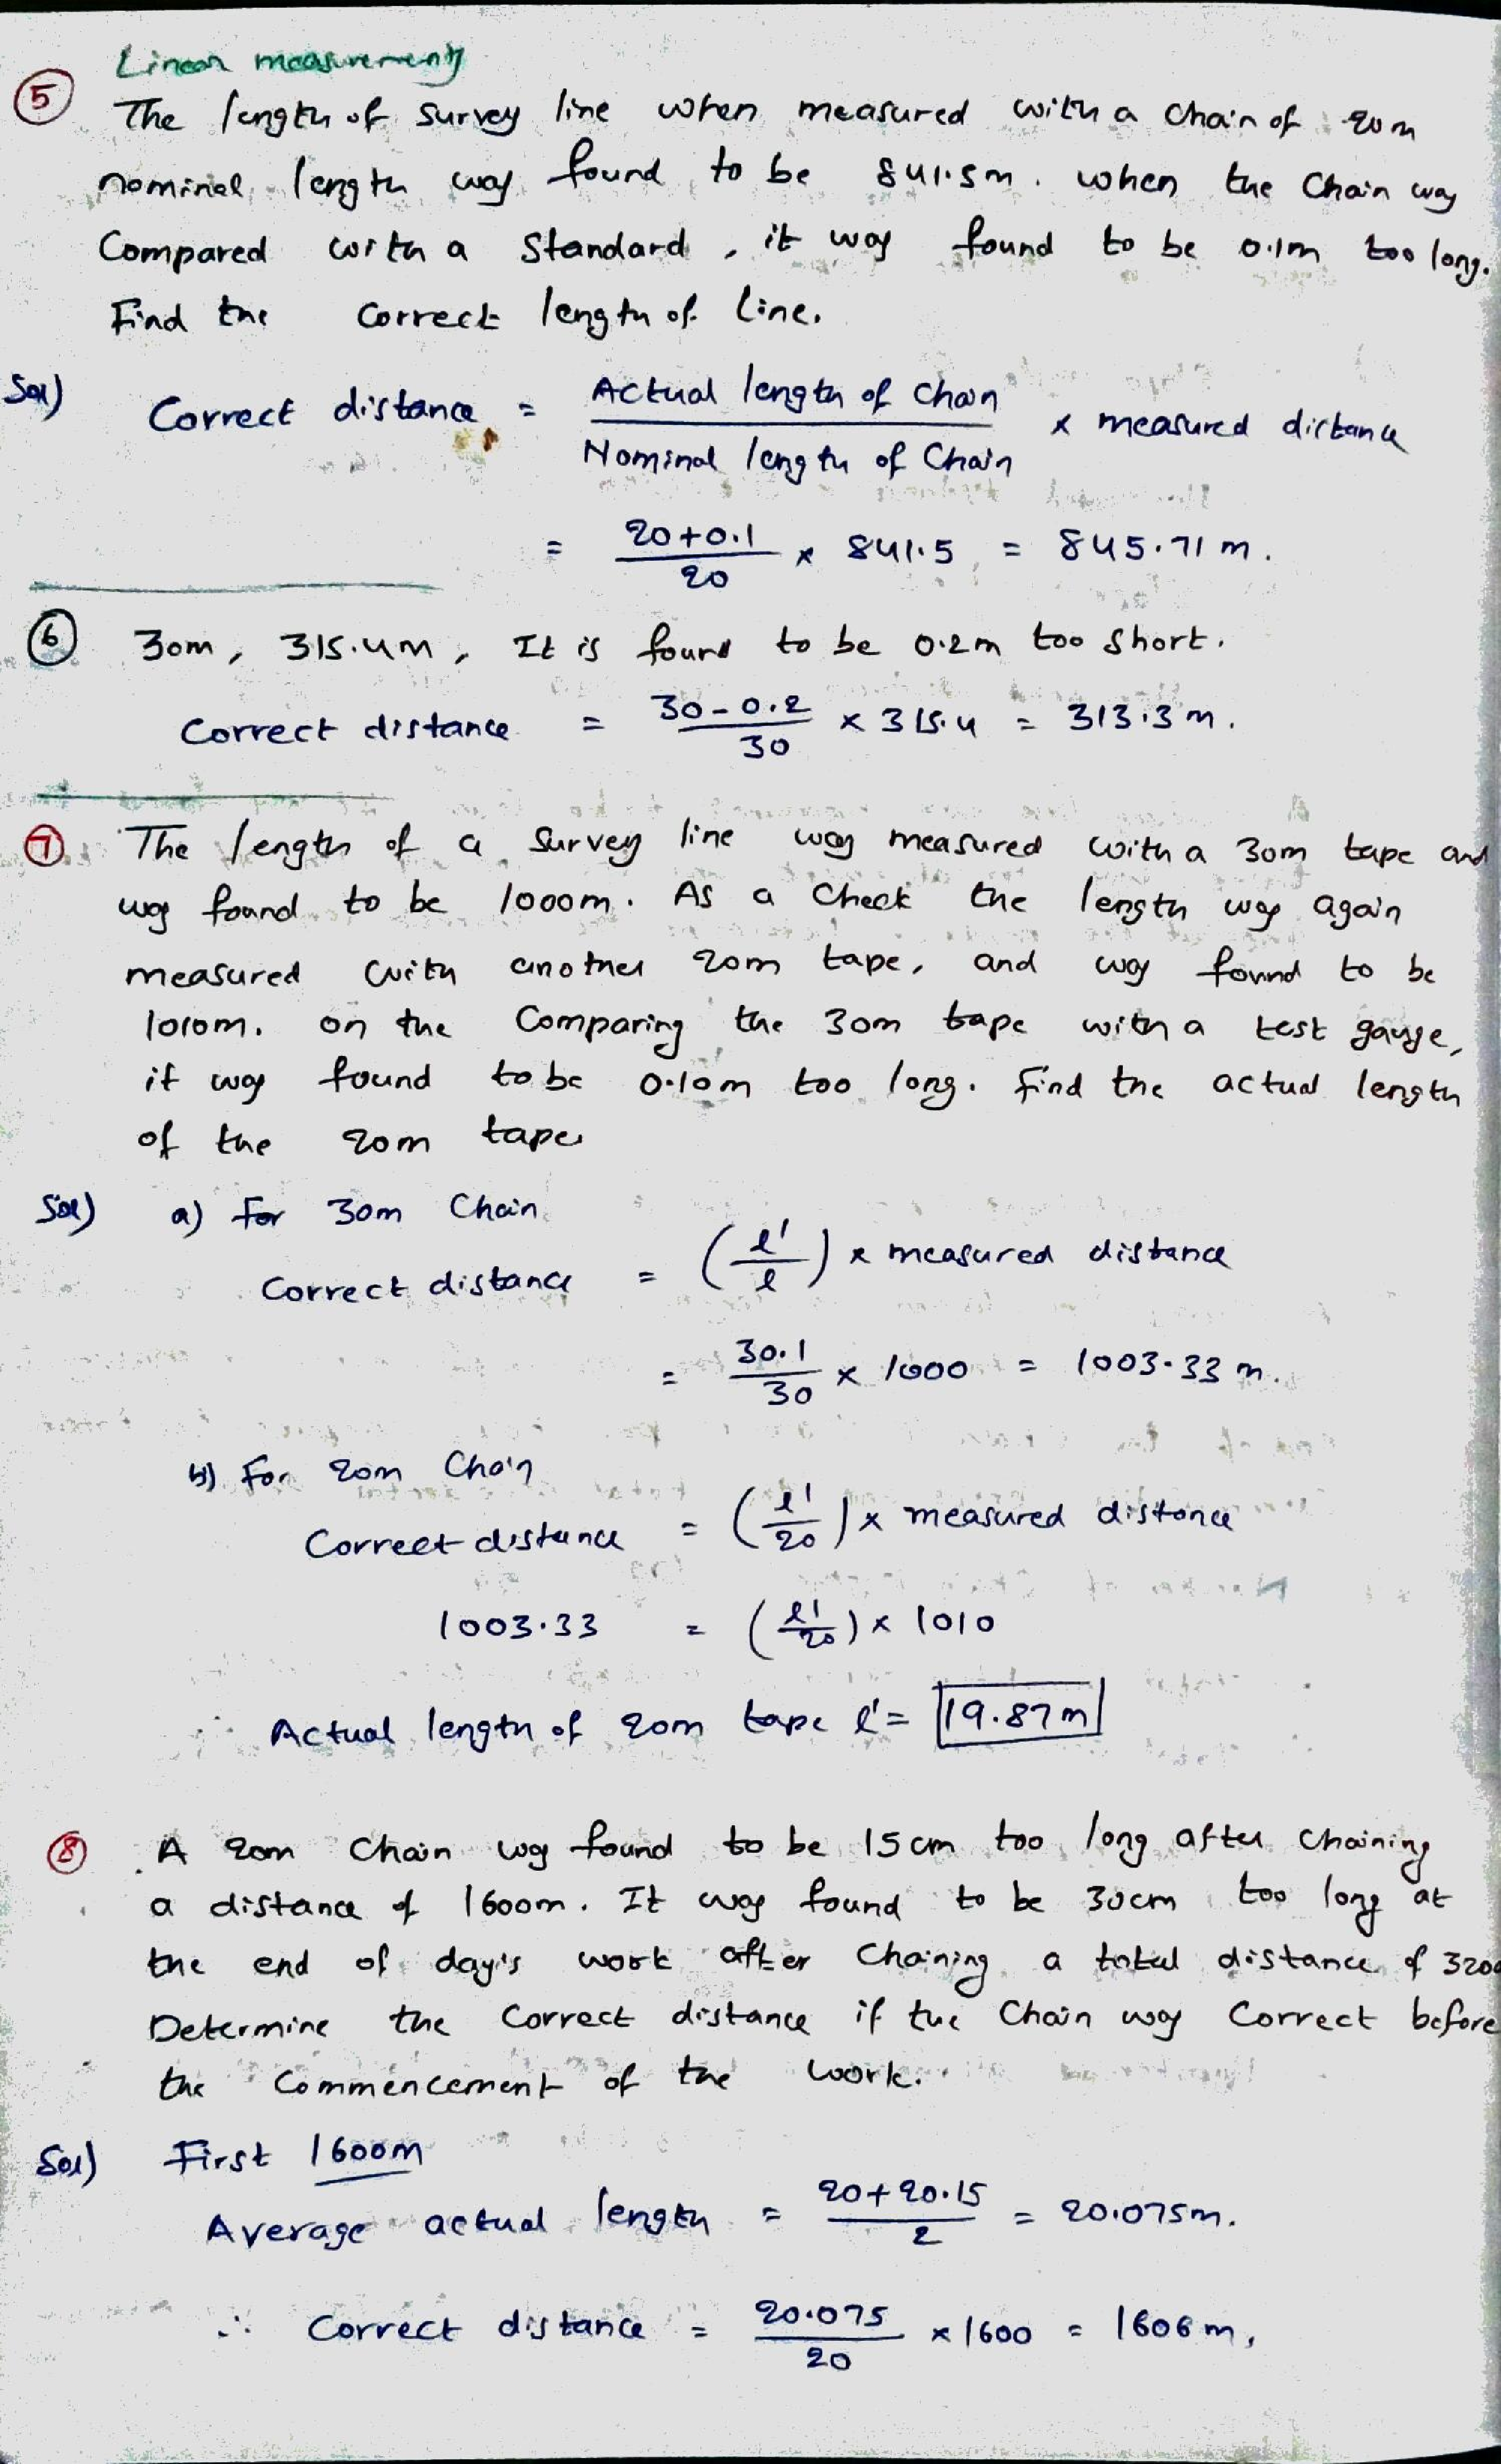 Linear measurements
5 The length of survey line when measured with a chain of 20m
nominal length was found to be 841.5m. when the Chain was
Compared with a Standard, it was found to be 0.1m too long.
Find the correct length of line.
Sol) Correct distance = Actual length of Chain / Nominal length of Chain × measured distance
= 20+0.1 / 20 × 841.5 = 845.71 m.
6 30m, 315.4m, It is found to be 0.2m too short.
Correct distance = 30-0.2 / 30 × 315.4 = 313.3 m.
7 The length of a survey line was measured with a 30m tape and
was found to be 1000m. As a check the length was again
measured with another 20m tape, and was found to be
1010m. on the Comparing the 30m tape with a test gauge,
it was found to be 0.10m too long. Find the actual length
of the 20m tape.
Sol) a) For 30m Chain
Correct distance = (l'/l) × measured distance
= 30.1 / 30 × 1000 = 1003.33 m.
b) For 20m Chain
Correct distance = (l'/20) × measured distance
1003.33 = (l'/20) × 1010
∴ Actual length of 20m tape l' = 19.87m
8 A 20m Chain was found to be 15cm too long after chaining
a distance of 1600m. It was found to be 30cm too long at
the end of day's work after Chaining a total distance of 3200
Determine the Correct distance if the Chain was Correct before
the Commencement of the work.
Sol) First 1600m
Average actual length = 20+20.15 / 2 = 20.075m.
∴ Correct distance = 20.075 / 20 × 1600 = 1606 m,